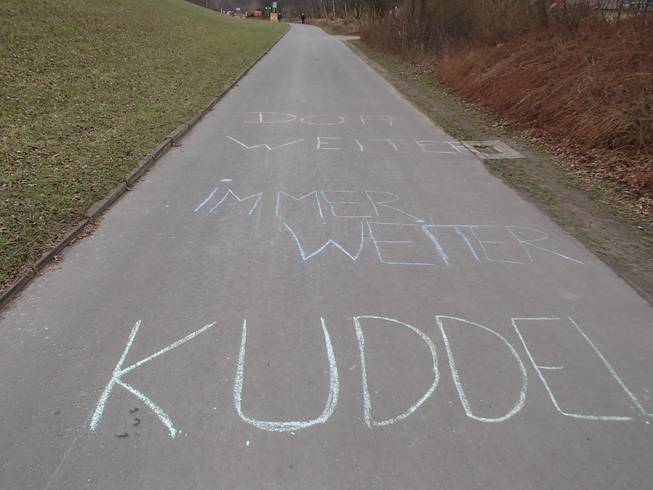 WEITER
IMMER
WEITER
KUDDEL